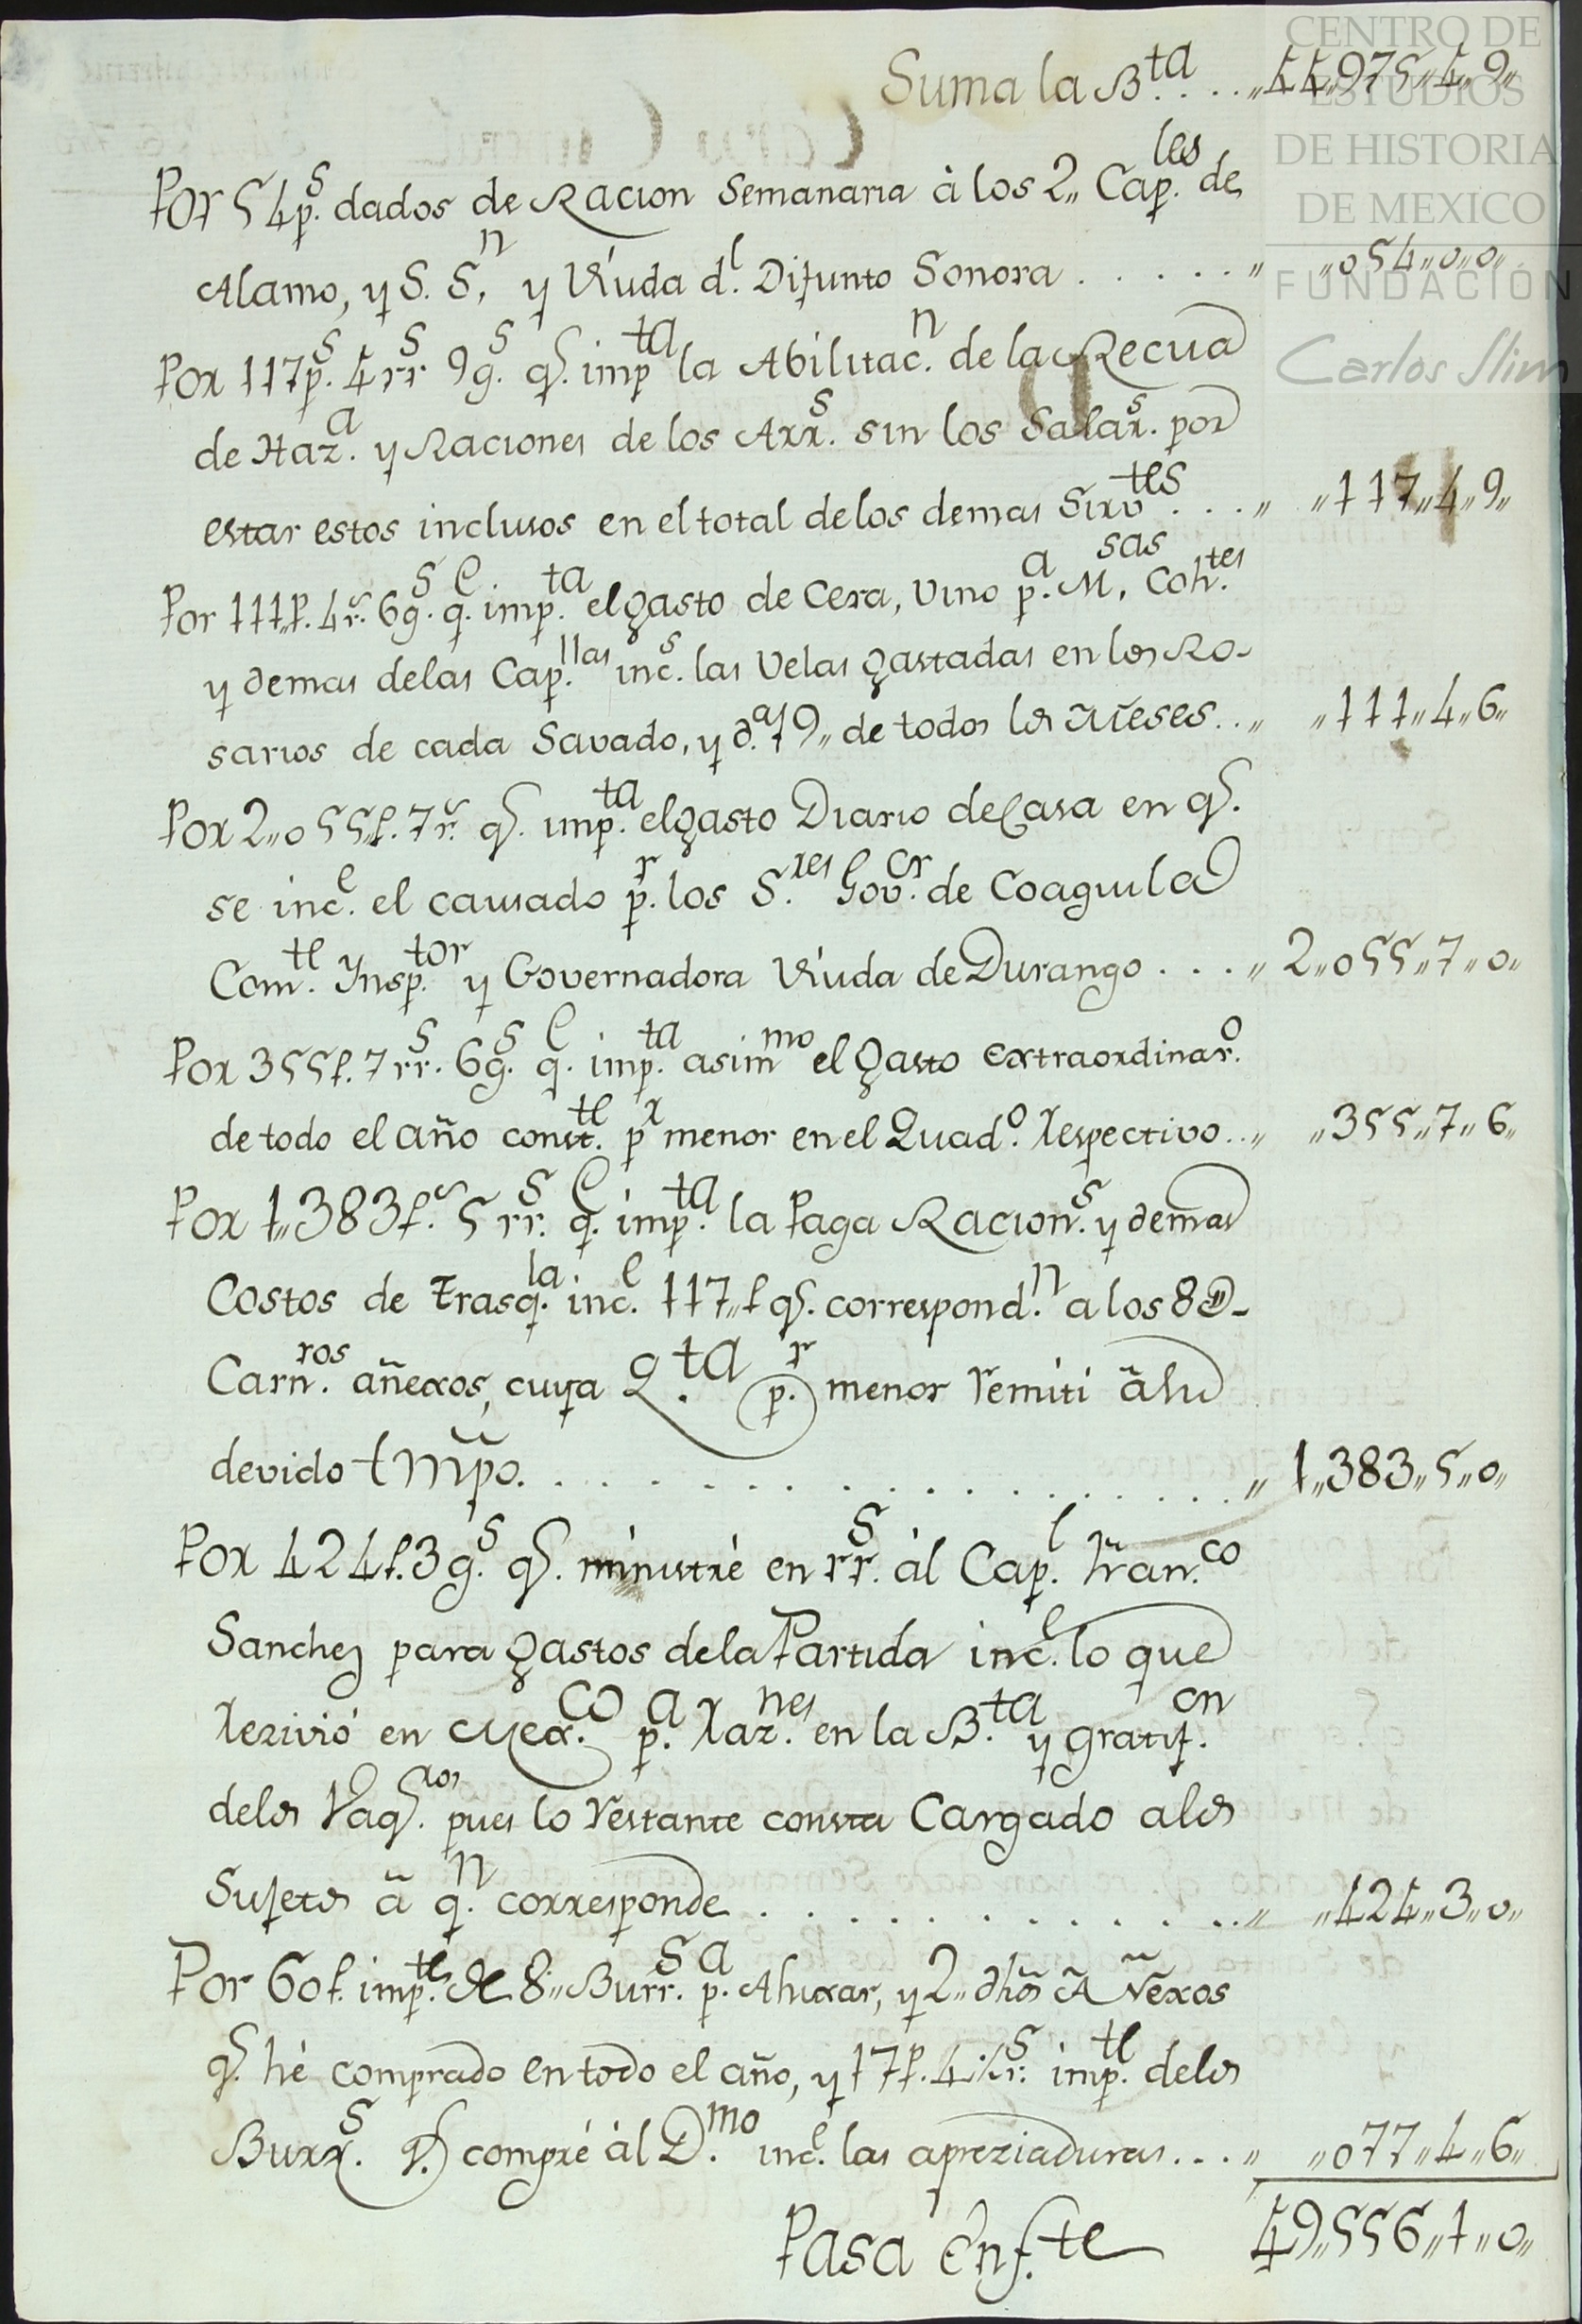 CENTRO DE
ESTUDIOS
DE HISTORIA
DE MEXICO
FUNDACIÓN
Carlos Slim
Suma la B.ta . . . „44„975„4„9„
Por 54p.s dados de Racion Semanaria à los 2„ Cap.les de
Alamo, y S. S.n y Viuda d.l Difunto Sonora . . . . . „ „054„0„0„
Por 117p.s 4rr.s 9g.s q.e imp.ta la Abilitac.n de la Recua
de Haz.a y Raciones de los Arr.s sin los Salar.s por
estar estos inclusos en el total de los demas Sirv.tes . . . „ „117„4„9„
Por 111p.s 4r.s 6g.s q.e imp.ta el gasto de Cera, Vino p.a M.sas Coh.tes
y demas de las Cap.llas inc.s las Velas gastadas en los Ro-
sarios de cada Savado, y d.a 19„ de todos los Meses . . „ „111„4„6„
Por 2„055p.s 7r.s q.e imp.ta el gasto Diario de Casa en q.e
se inc.e el causado p.r los S.res Gov.or de Coaguila
Com.te Ynsp.tor y Governadora Viuda de Durango . . . „ 2„055„7„0„
Por 355p. 7rr.s 6g.s q.e imp.ta asim.mo el gasto extraordinar.o
de todo el año const.te p.r menor en el Quad.o respectivo . . „ „355„7„6„
Por 1„383p.s 5rr.s q.e imp.ta la Paga Racion.s y demas
Costos de trasq.la inc.e 117„p q.e correspond.n a los 8„ D-
Carn.ros añexos, cuya Q.ta p.r menor remiti ã su
devido tmpo. . . . . . . . . . . . . . „ 1„383„5„0„
Por 424p. 3g.s q.e ministré en rr.s ál Cap.l Fran.co
Sanchez para gastos de la Partida inc.e lo que
rezivió en Mex.co p.a raz.nes en la B.ta y gratif.on
de los Vaq.ros pues lo restante consta Cargado a los
Sujetos ã q.n corresponde . . . . . . . . . . „ „424„3„0„
Por 60p. imp.te de 8„ Burr.s p.a Ahixar, y 2„ dhos Añexos
q.e hé comprado en todo el año, y 17p. 4½r.s imp.te de los
Burr.s q.e compré ál D.mo inc.e las apreziaduras . . . „ „077„4„6„
Pasa Enf.te 49„556„1„0„